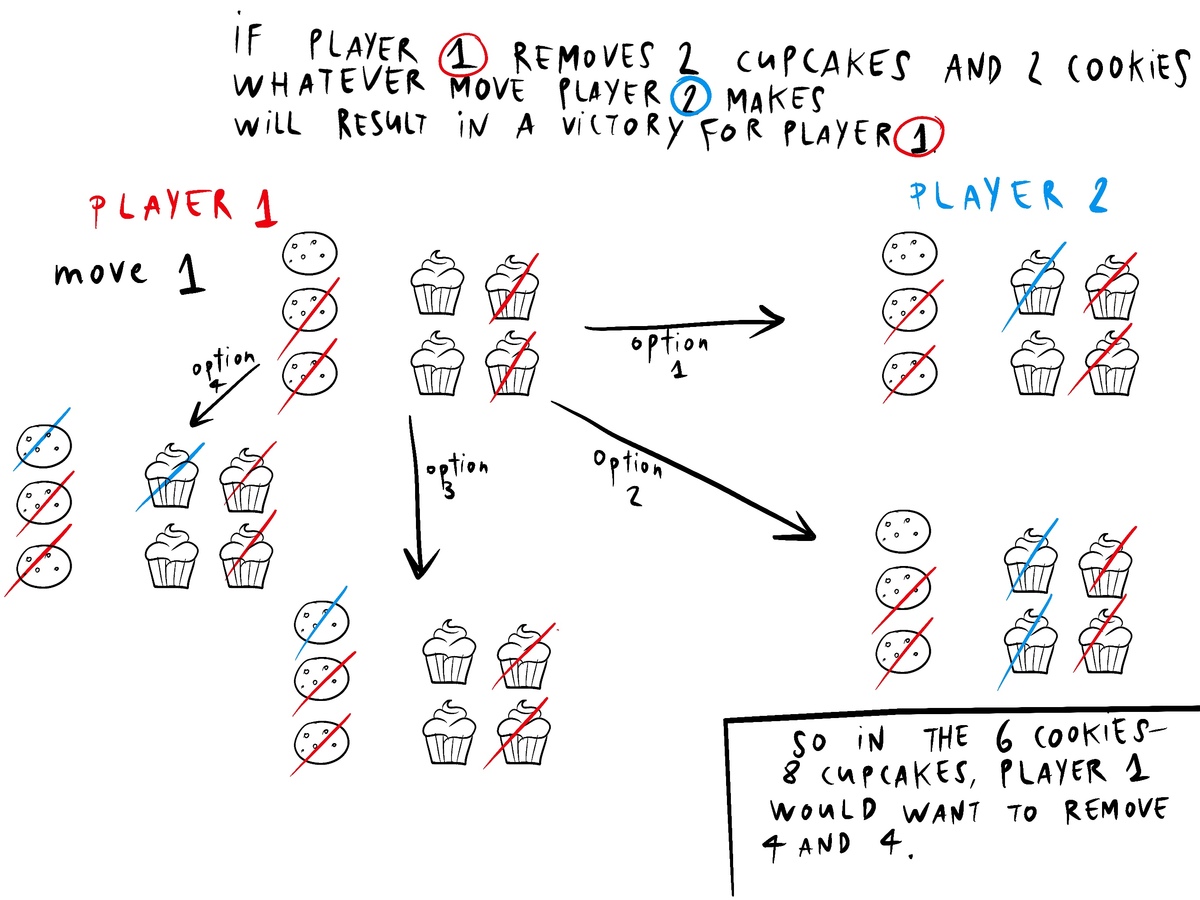 iF PLAYER 1 REMOVES 2 CUPCAKES AND 2 COOKIES
WHATEVER MOVE PLAYER 2 MAKES
WiLL RESULT iN A ViCTORY FOR PLAYER 1
PLAYER 1
PLAYER 2
move 1
option
1
option
4
option
3
option
2
SO iN THE 6 COOKiES–
8 CUPCAKES, PLAYER 1
WOULD WANT TO REMOVE
4 AND 4.